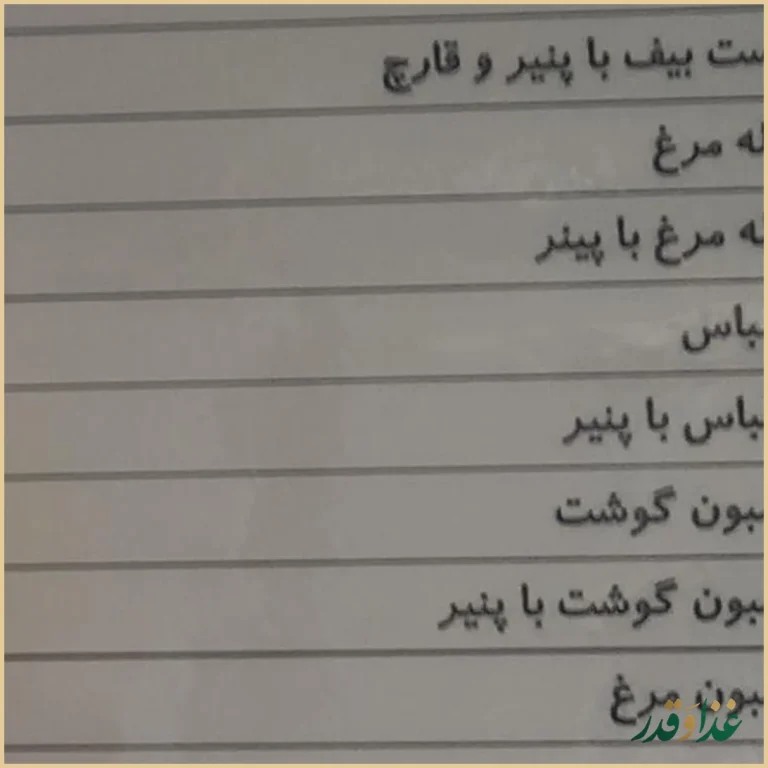 ست بیف با پنیر و قارچ
له مرغ
له مرغ با پینر
باس
باس با پنیر
بون گوشت
بون گوشت با پنیر
بون مرغ
غذا و قدر